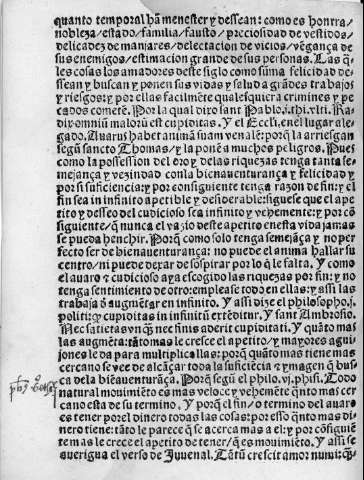 quanto temporal hã menester y dessean: como es honrra/
nobleza/estado/familia/fausto/p̃ciosidad de vestidos/
delicadez de manjares/delectacion de vicios/vẽgança de
sus enemigos/estimacion grande de sus personas. Las q̃-
les cosas los amadores deste siglo como sũma felicidad de-
ssean y buscan y ponen sus vidas y salud a grãdes trabajos
y riesgos: y por ellas facilmẽte qualesquiera crimines y pe-
cados comete. Por la qual dixo sant Pablo.j.thi.vlti. Ra-
dix omniũ maloruʒ est cupiditas. Y el Eccl'i. en el lugar ale-
gado. Auarus habet animã suam venalẽ: porq̃ la arriesgan
segũ sancto Thomas/y la ponẽ a muchos peligros. Pues
como la possession del oro y de las riquezas tenga tanta se-
mejança y vezindad conla bienauenturança y felicidad: y
por si suficiencia: y por consiguiente tenga razon de fin: y el
fin sea in infinito apetible y desiderable: siguese que el ape-
tito y desseo del cudicioso sea infinito y vehemente: y por cõ
siguiente/q̃ nunca el vazio deste apetito enesta vida jamas
se pueda henchir. Porq̃ como solo tenga semejãça/y no per
fecto ser de bienauenturança: no puede el anima hallar su
centro/ni puede dexar de sospirar por lo q̃ le falta. Y como
el auaro & cudicioso aya escogido las riquezas por fin: y no
tenga sentimiento de otro templease todo en ellas: y assi las
trabaja õ augmẽtar en infinito. Y assi dize el philosopho.j.
politi: q̃ cupiditas in infinitũ extẽditur. Y sant Ambrosio.
Nec satietas vnq̃ʒ nec finis aderit cupiditati. Y quãto mas
las augmẽta: tãto mas le cresce el apetito/y mayores agui-
jones le da para multiplicallas: porq̃ quãto mas tiene mas
cercano se vee de alcãçar toda la suficiẽcia & ymagen q̃ bus
ca dela biẽauenturãça. Porq̃ segũ el philo.vj.phisi. Todo
natural mouimiẽto es mas veloce y vehemẽte q̃nto mas cer
cano esta de su termino. Y porq̃ el fin/o termino del auaro
es tener por el dinero todas las cosas: por esso q̃nto mas di-
nero tiene: tãto le parece q̃ se acerca mas a el: y por cõsiguiẽ
te mas le crece el apetito de tener/q̃ es mouimiẽto. Y assi se
auerigua el verso de Juuenal. Tãtũ crescit amor numi: q̃-